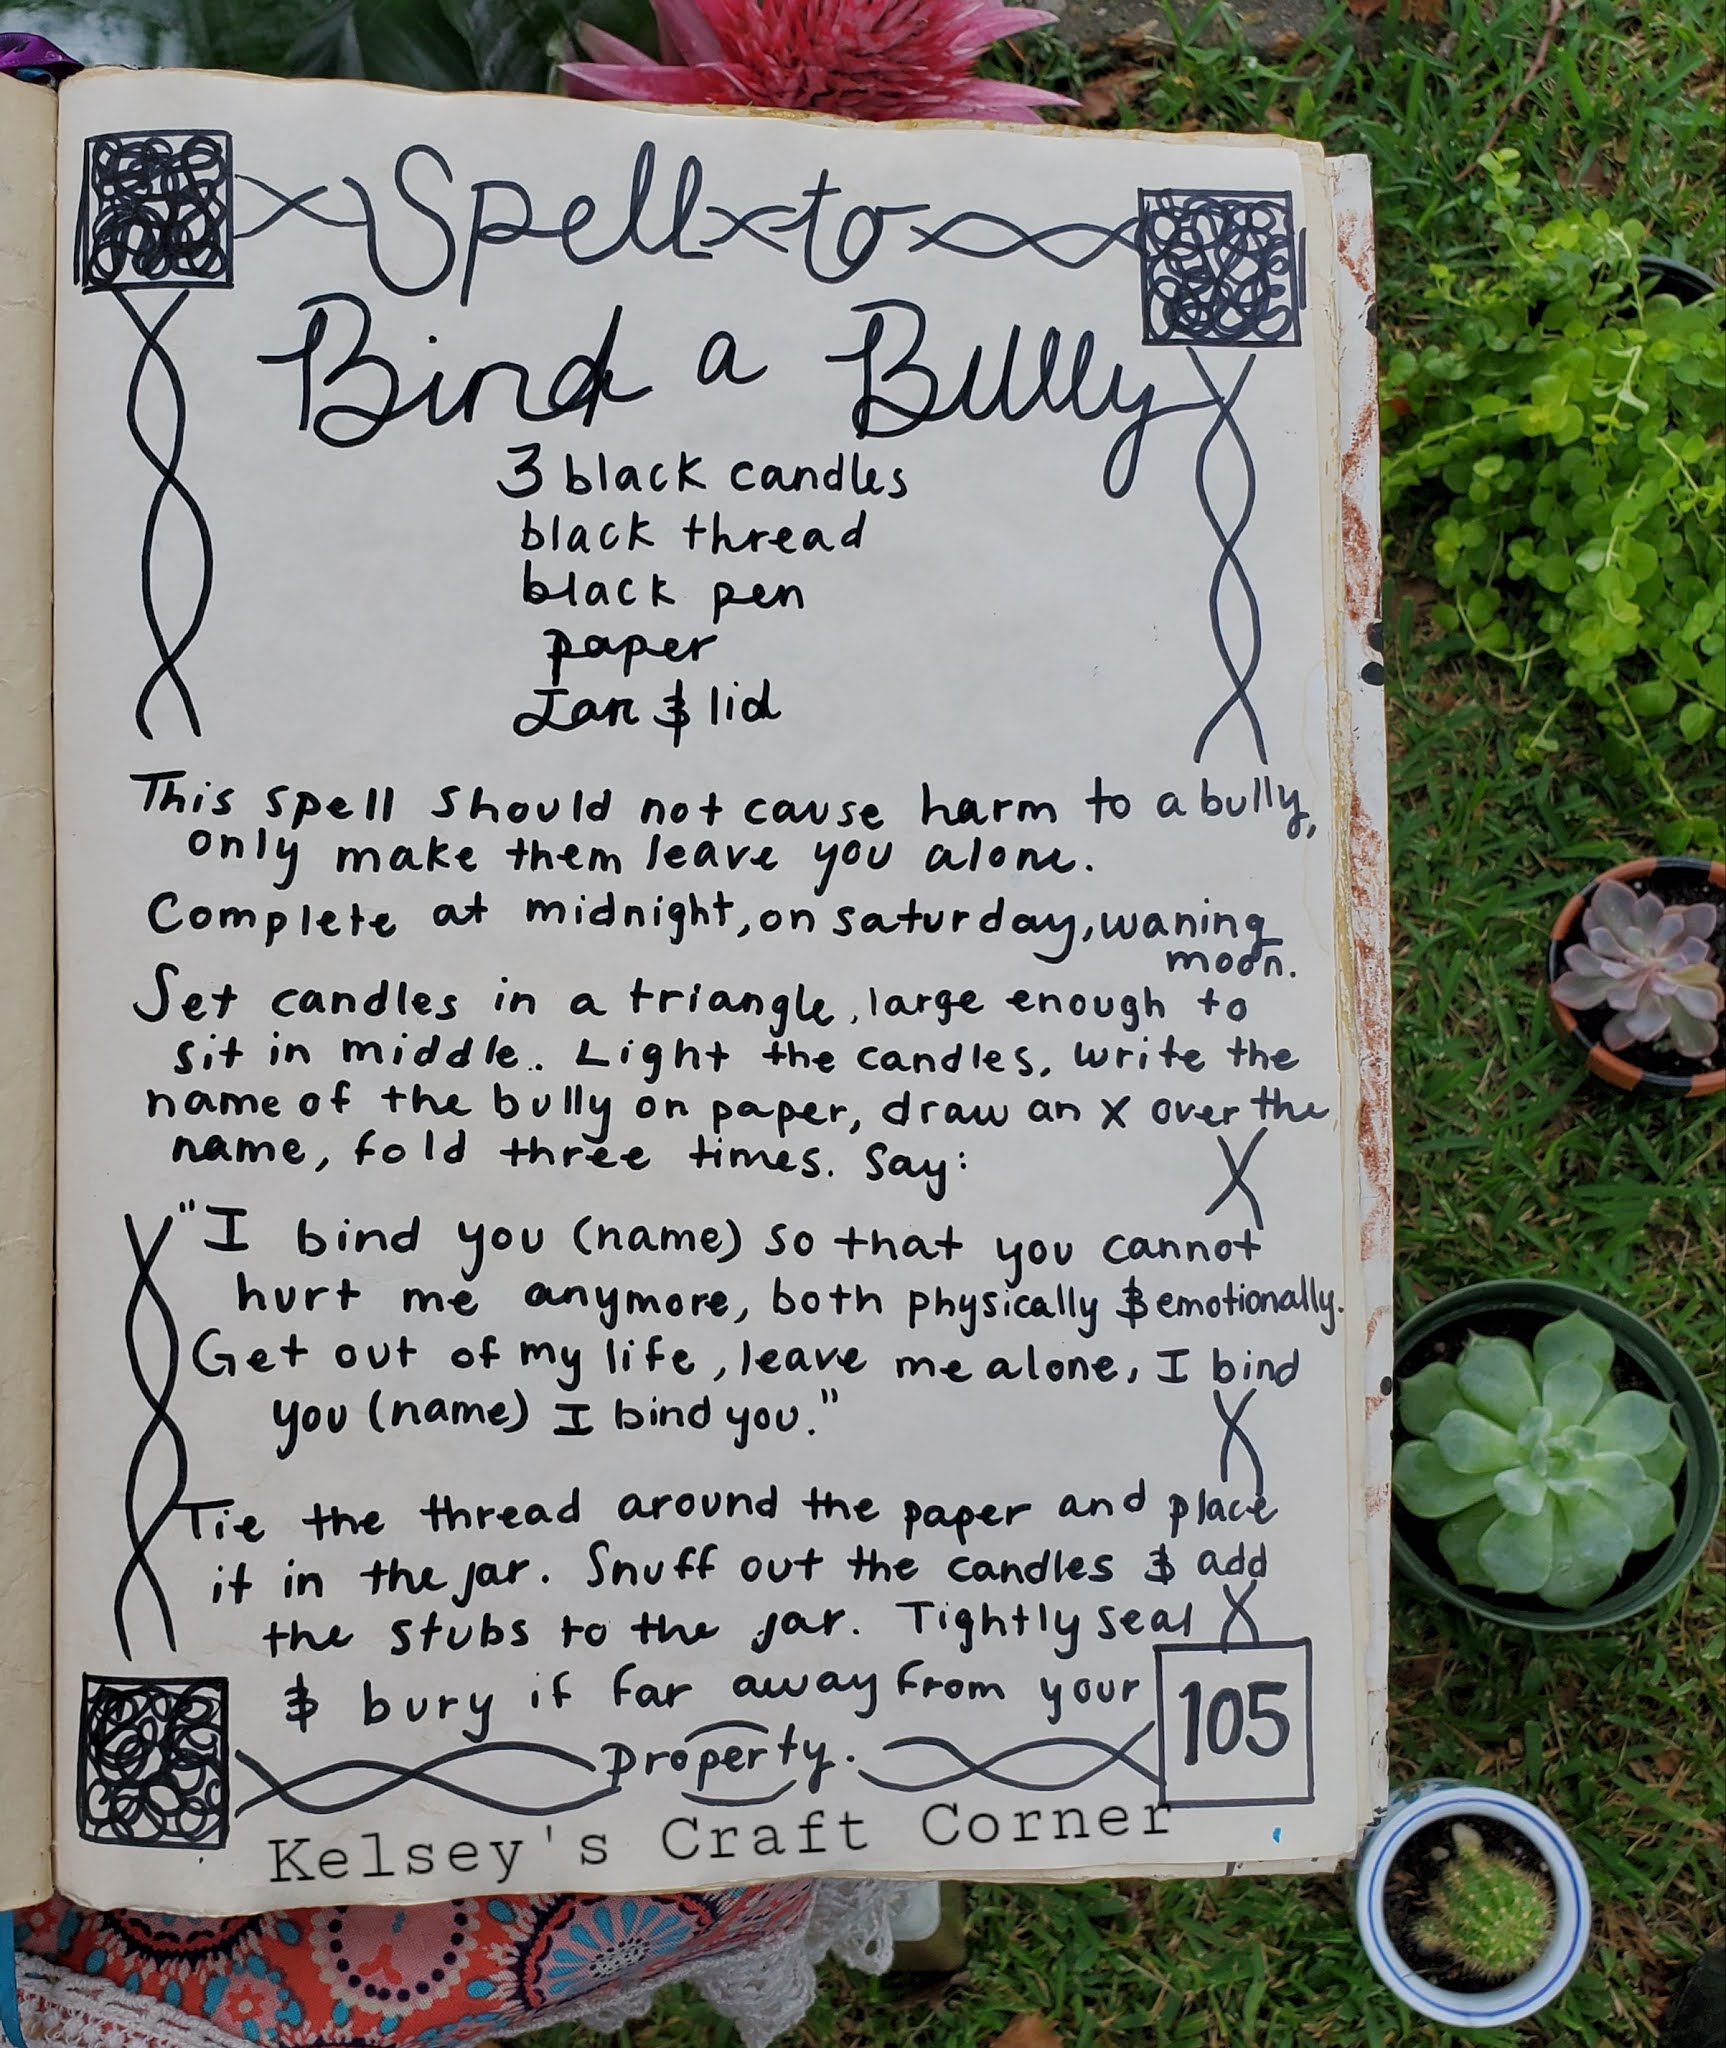 Spell to
Bind a Bully
3 black candles
black thread
black pen
paper
Jar & lid
This spell should not cause harm to a bully,
only make them leave you alone.
Complete at midnight, on saturday, waning
moon.
Set candles in a triangle, large enough to
sit in middle. Light the candles, write the
name of the bully on paper, draw an X over the
name, fold three times. Say:
"I bind you (name) so that you cannot
hurt me anymore, both physically & emotionally.
Get out of my life, leave me alone, I bind
you (name) I bind you."
Tie the thread around the paper and place
it in the jar. Snuff out the candles & add
the stubs to the jar. Tightly seal
& bury it far away from your
property.
105
Kelsey's Craft Corner